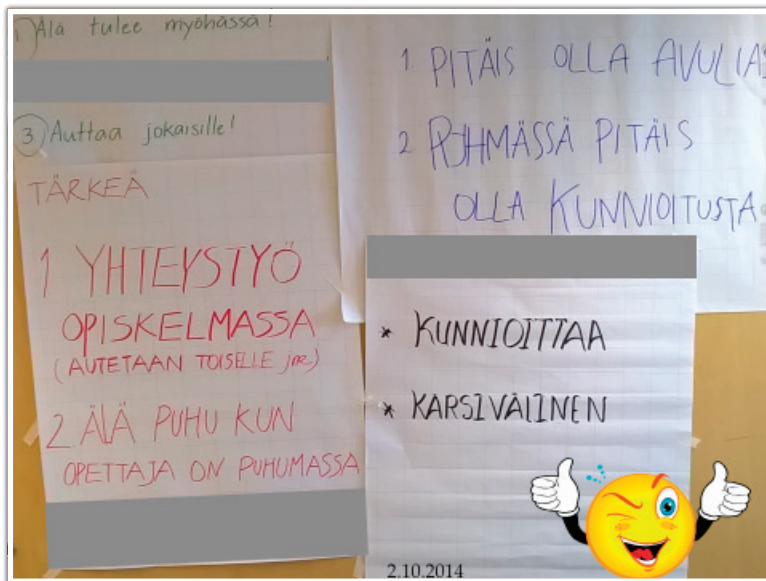 1) Älä tulee myöhässä!
3) Auttaa jokaisille!
TÄRKEÄ
1 YHTEYSTYÖ
OPISKELMASSA
(AUTETAAN TOISELLE jne)
2 ÄLÄ PUHU KUN
OPETTAJA ON PUHUMASSA
1 PITÄIS OLLA AVULIAS
2 RYHMÄSSÄ PITÄIS
OLLA KUNNIOITUSTA
* KUNNIOITTAA
* KARSIVÄLINEN
2.10.2014